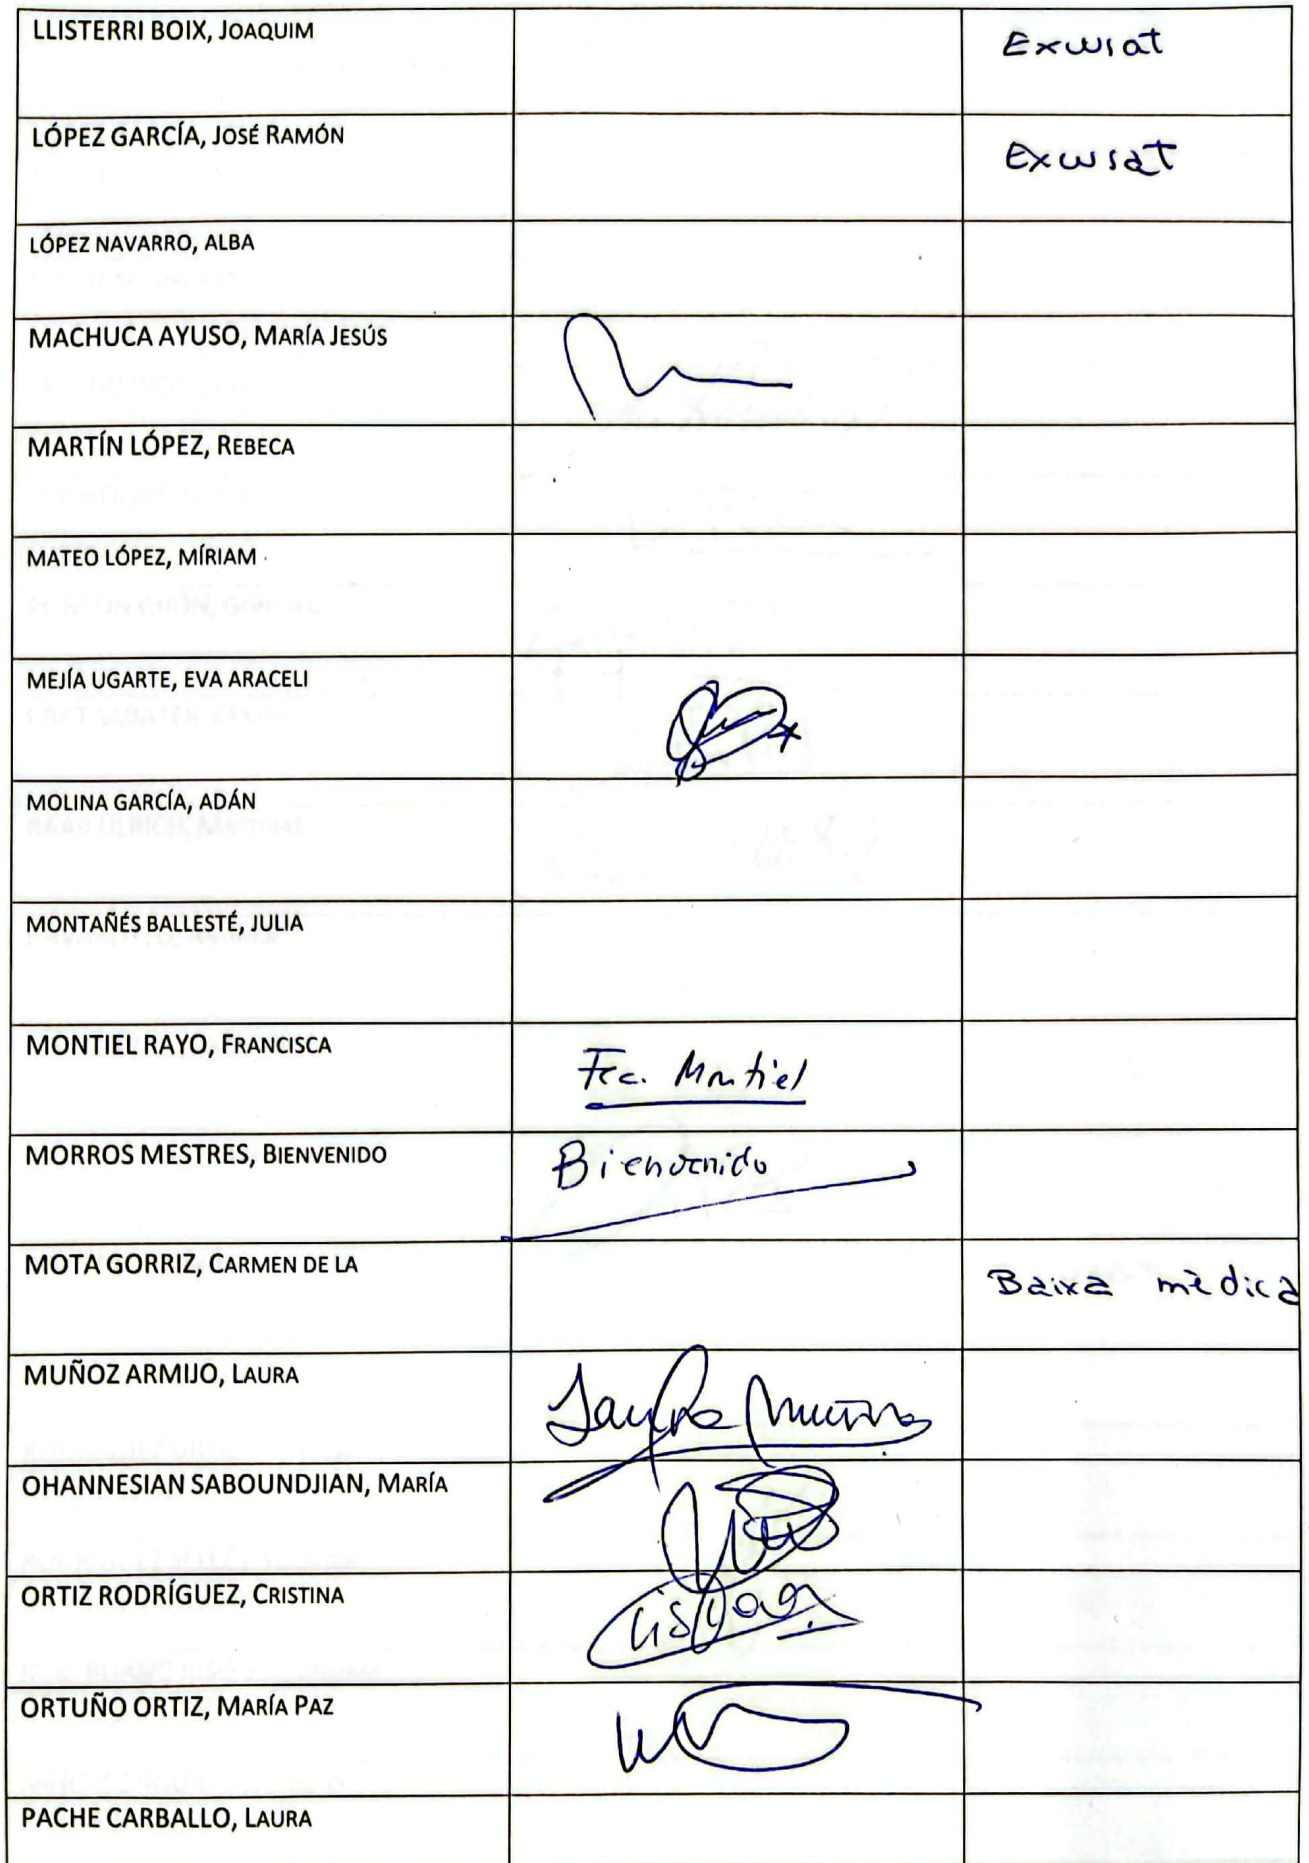 LLISTERRI BOIX, JOAQUIM
Excusat
LÓPEZ GARCÍA, JOSÉ RAMÓN
Excusat
LÓPEZ NAVARRO, ALBA
MACHUCA AYUSO, MARÍA JESÚS
MARTÍN LÓPEZ, REBECA
MATEO LÓPEZ, MÍRIAM
MEJÍA UGARTE, EVA ARACELI
MOLINA GARCÍA, ADÁN
MONTAÑÉS BALLESTÉ, JULIA
MONTIEL RAYO, FRANCISCA
Fcc. Montiel
MORROS MESTRES, BIENVENIDO
Bienvenido
MOTA GORRIZ, CARMEN DE LA
Baixa mèdica
MUÑOZ ARMIJO, LAURA
Laura Muñoz
OHANNESIAN SABOUNDJIAN, MARÍA
ORTIZ RODRÍGUEZ, CRISTINA
ORTUÑO ORTIZ, MARÍA PAZ
PACHE CARBALLO, LAURA